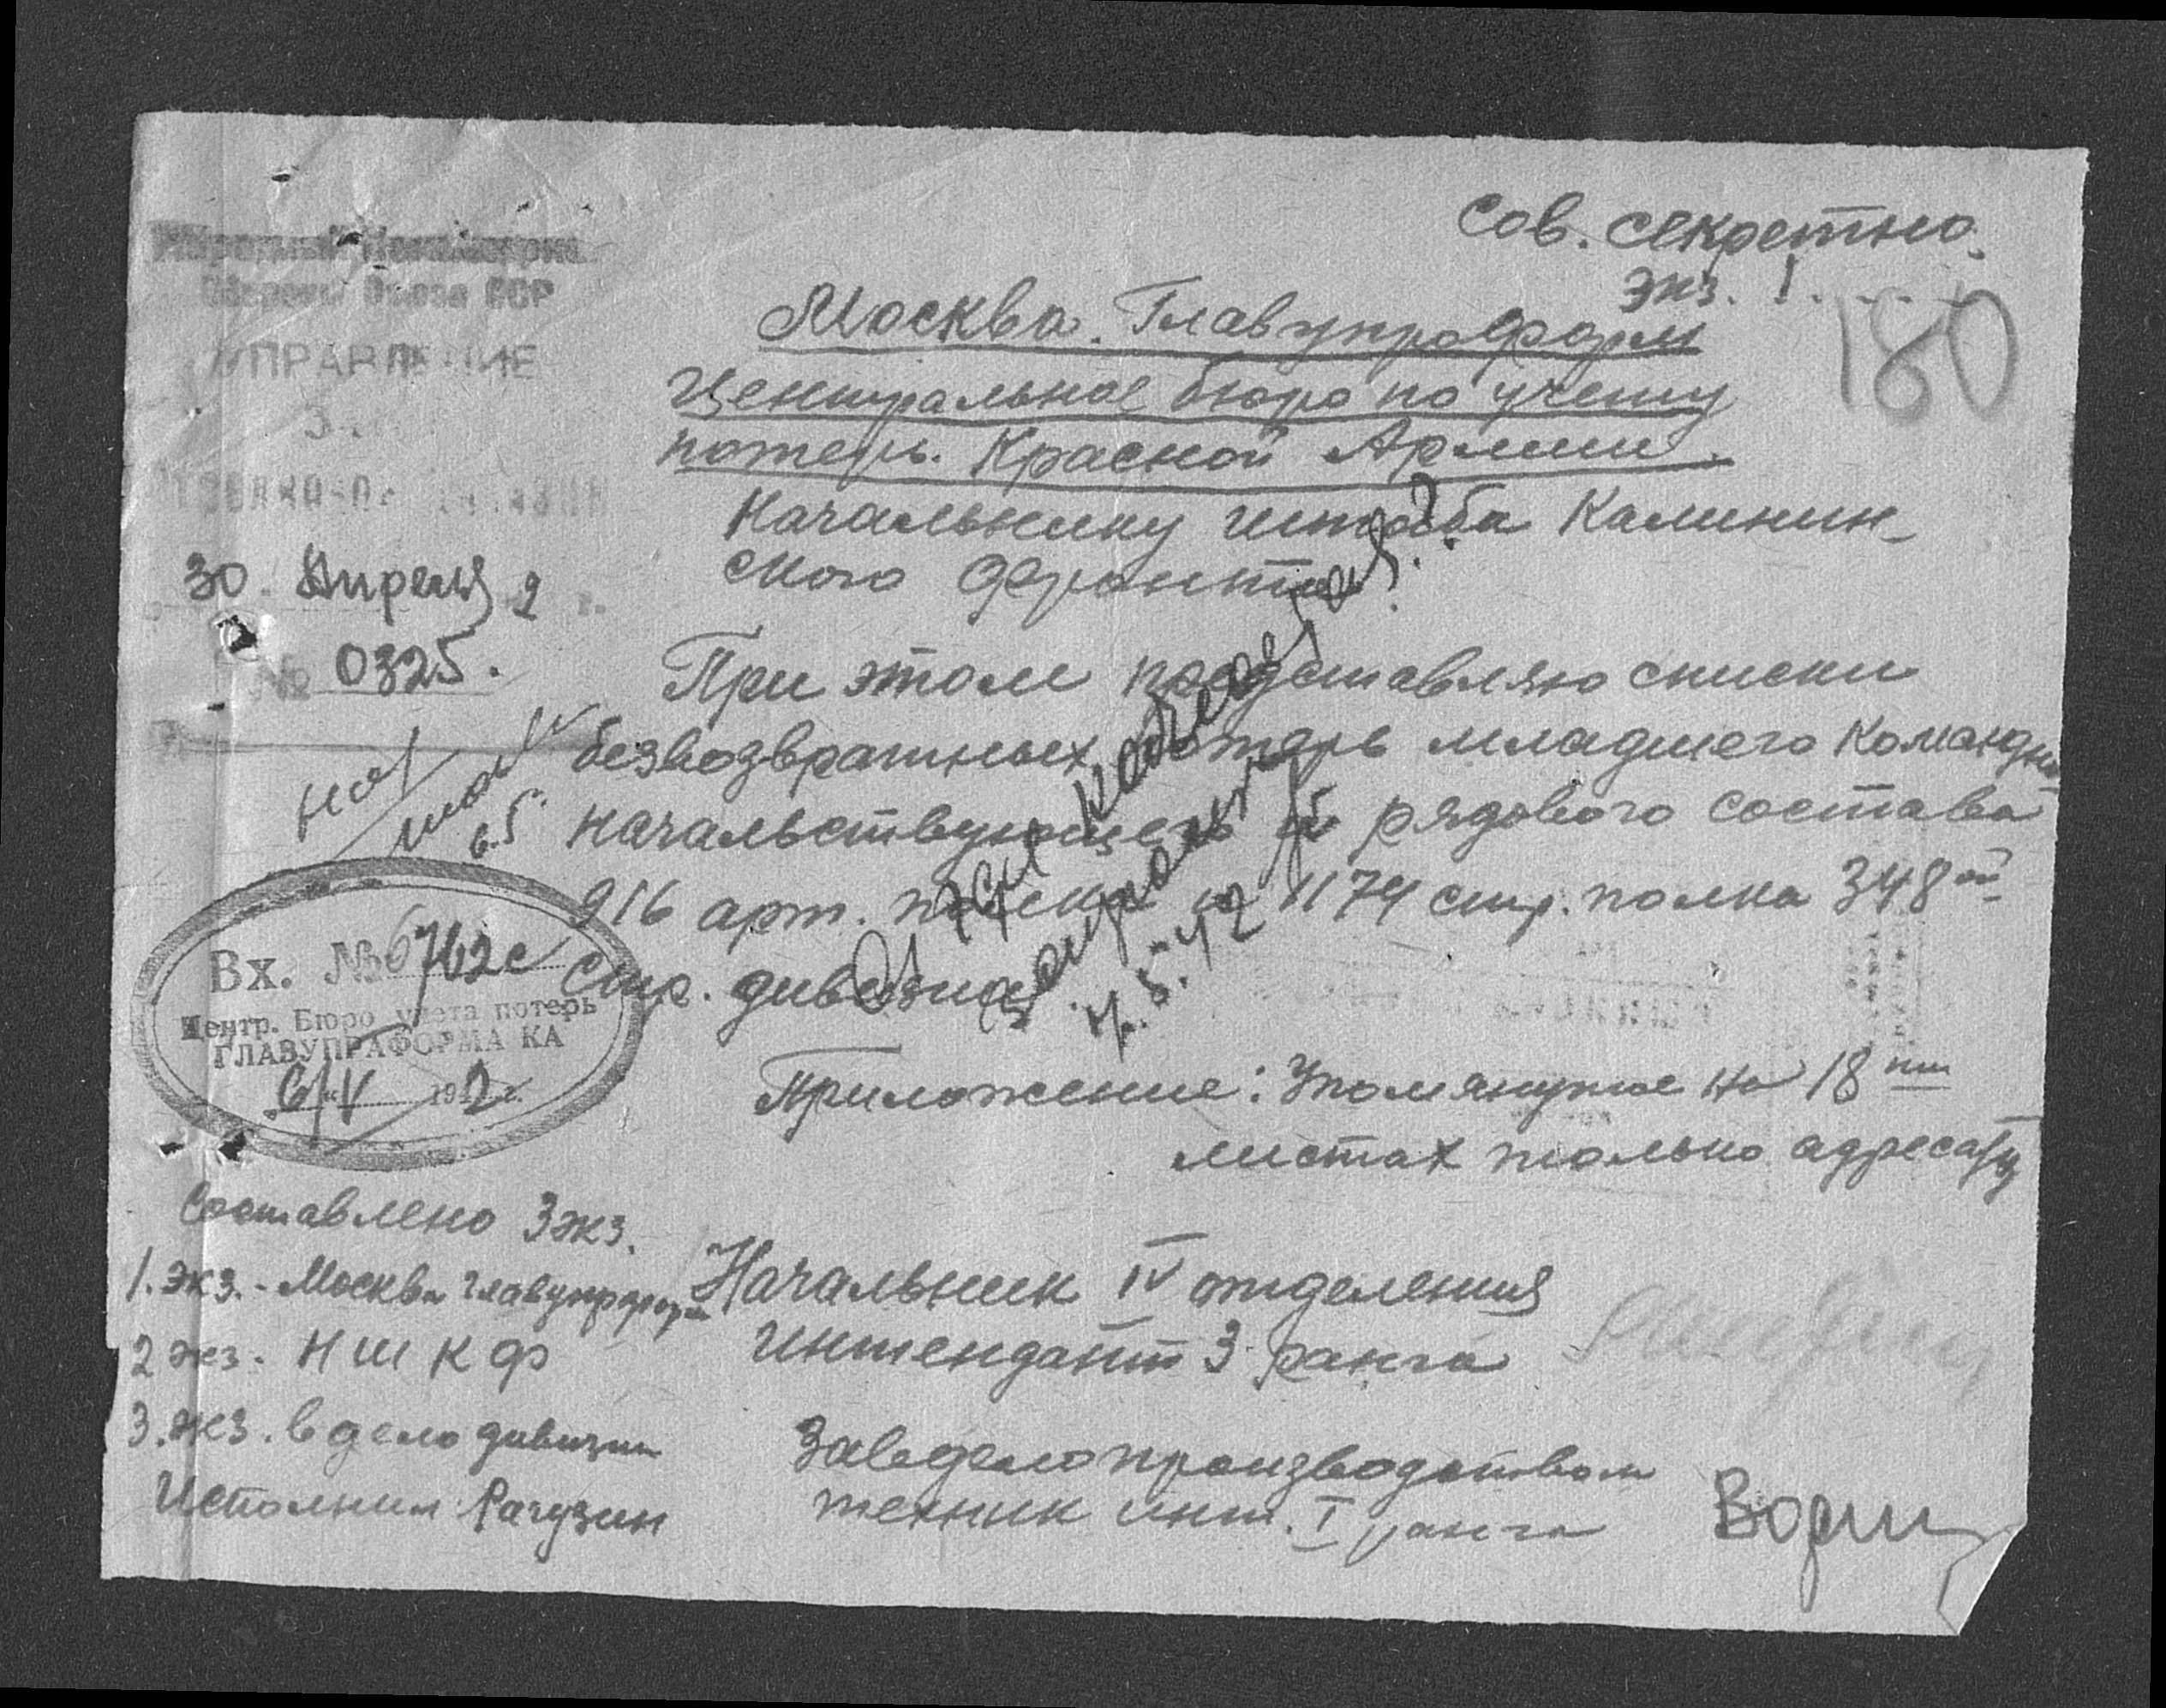 Сов. секретно.
Экз. 1.
180
Народный Комиссариат
Обороны Союза ССР
УПРАВЛЕНИЕ
30. Апреля 2 г.
№ 0325.
Москва. Главупраформ
Центральное бюро по учету
потерь. Красной Армии.
Начальнику штаба Калинин-
ского фронта.
При этом представляю списки
безвозвратных потерь младшего командно
начальствующего и рядового состава
916 арт. полка и 1174 стр. полка 348 ой
стр. дивизии.
6.5.
7.5.42
Вх. № 6762с
Центр. Бюро учета потерь
ГЛАВУПРАФОРМА КА
6/V 1942 г.
Приложение: Упомянутое на 18 ти
листах только адресату
Составлено 3 экз.
1. экз. - Москва Главупрформ
2 экз. Н Ш К Ф
3. экз. в дело дивизии
Исполнил Рагузин
Начальник IV отделения
Интендант 3 ранга
Завделопроизводством
техник инт. I ранга